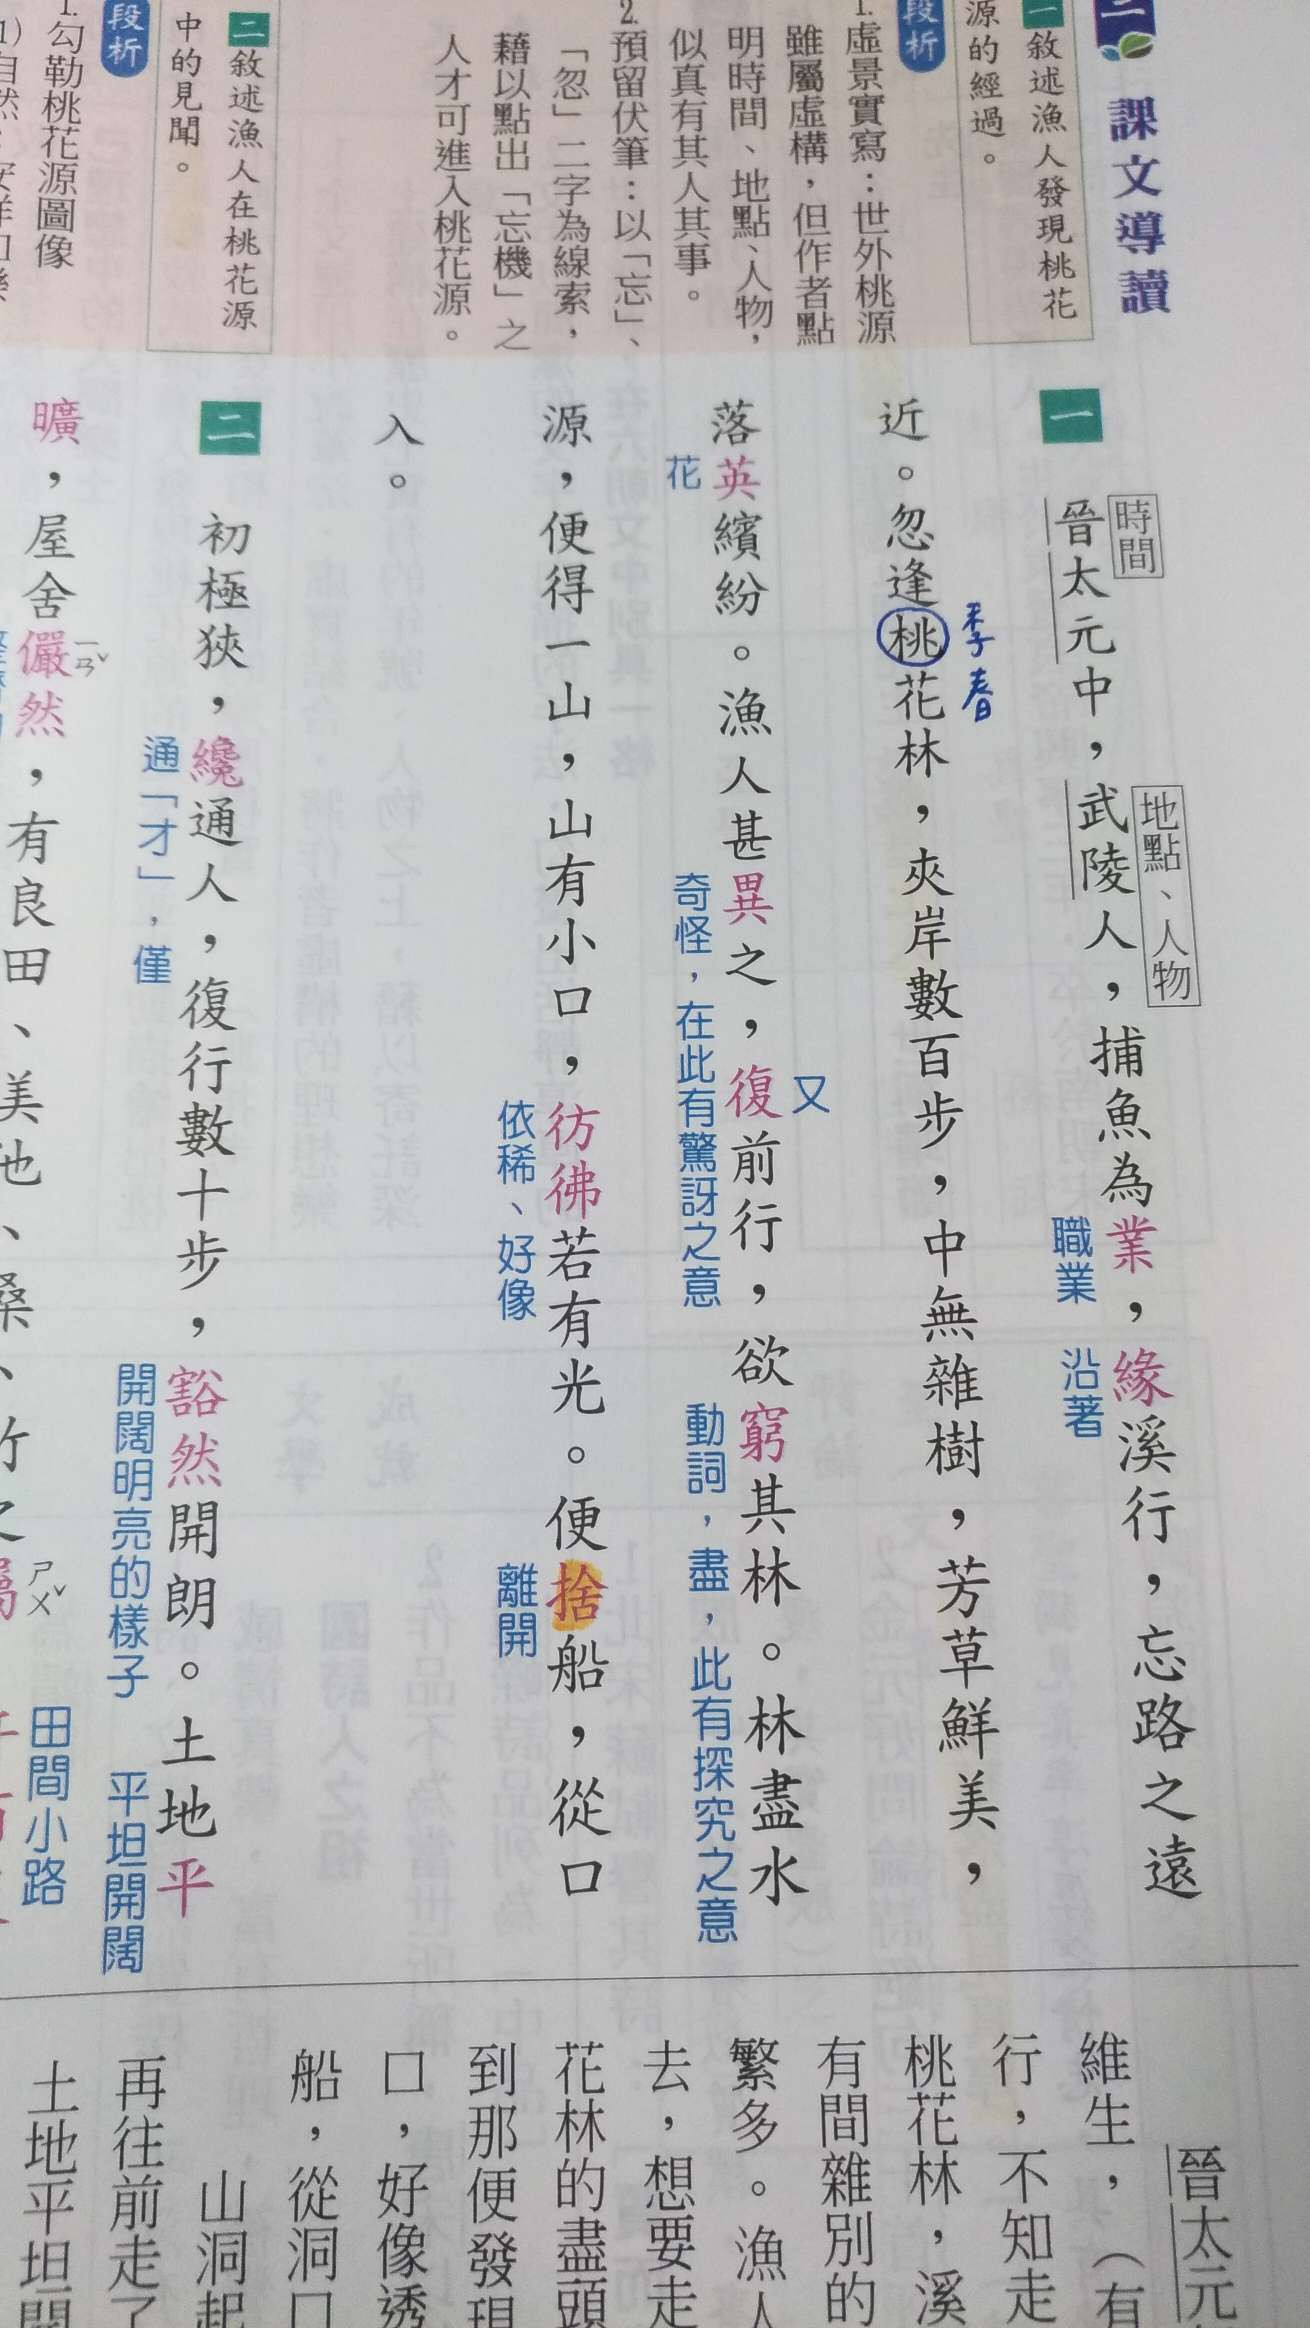 二 課文導讀
一 敘述漁人發現桃花
源的經過。
段析
1.虛景實寫：世外桃源
雖屬虛構，但作者點
明時間、地點、人物，
似真有其人其事。
2.預留伏筆：以「忘」、
「忽」二字為線索，
藉以點出「忘機」之
人才可進入桃花源。
二 敘述漁人在桃花源
中的見聞。
段析
1.勾勒桃花源圖像
時間
地點、人物
一 晉太元中，武陵人，捕魚為業，緣溪行，忘路之遠
職業 沿著
季春
近。忽逢桃花林，夾岸數百步，中無雜樹，芳草鮮美，
又
落英繽紛。漁人甚異之，復前行，欲窮其林。林盡水
花 奇怪，在此有驚訝之意 動詞，盡，此有探究之意
源，便得一山，山有小口，彷彿若有光。便捨船，從口
依稀、好像 離開
入。
二 初極狹，纔通人，復行數十步，豁然開朗。土地平
通「才」，僅 開闊明亮的樣子 平坦開闊
ㄧㄢˇ ㄕㄨˇ
曠，屋舍儼然，有良田、美池、桑、竹之屬
田間小路
晉太元
維生，（有
行，不知走
桃花林，溪
有間雜別的
繁多。漁人
去，想要走
花林的盡頭
到那便發現
口，好像透
船，從洞口
山洞起
再往前走了
土地平坦開